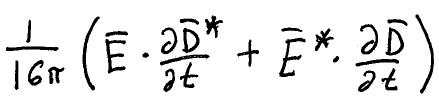 1/16π (E̅ · ∂D̅*/∂t + E̅* · ∂D̅/∂t)